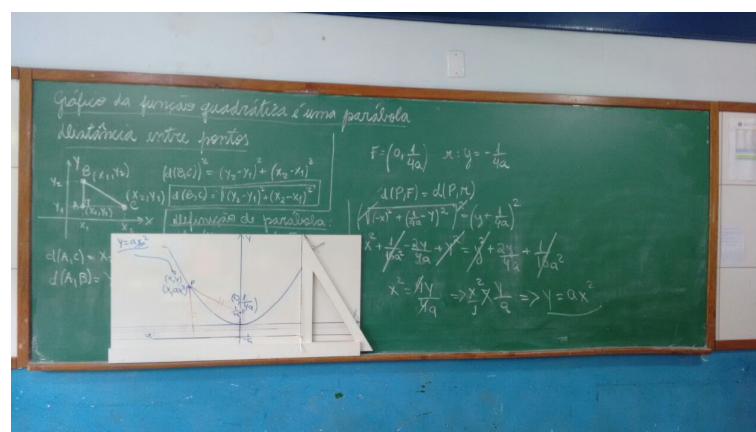 Gráfico da função quadrática é uma parábola
distância entre pontos
Y
Y₂
B(X₁,Y₂)
Y₁
A
(X₁,Y₁)
(X₂,Y₁)
C
X₁
X
(d(B,C))² = (Y₂-Y₁)² + (X₂-X₁)²
d(B,C) = √(Y₂-Y₁)² + (X₂-X₁)²
Definição de parábola:
d(A,C) = X
d(A,B) =
y=ax²
Y
P
F = (0, 1/4a) r: y = -1/4a
d(P,F) = d(P,r)
(√(-x)² + (1/4a - Y)²)² = (y + 1/4a)²
x² + 1/16a² - 2Y/4a + Y² = y² + 2Y/4a + 1/16a²
x² = 4Y/4a => x²/1 = Y/a => Y = ax²